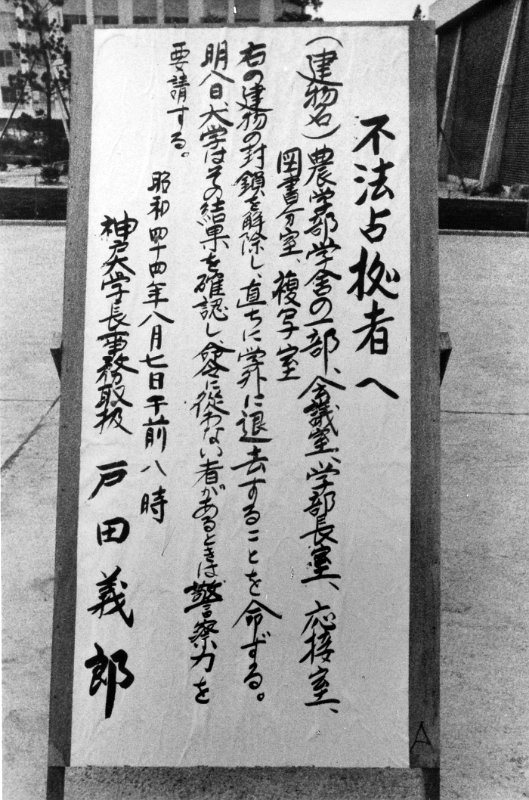 不法占拠者へ
(建物名)農学部学舎の一部、会議室、学部長室、応接室、
図書分室、複写室
右の建物の封鎖を解除し、直ちに学外に退去することを命ずる。
明八日大学はその結果を確認し、命令に従わない者があるときは警察力を
要請する。
昭和四十四年八月七日午前八時
神戸大学長事務取扱
戸田義郎
A